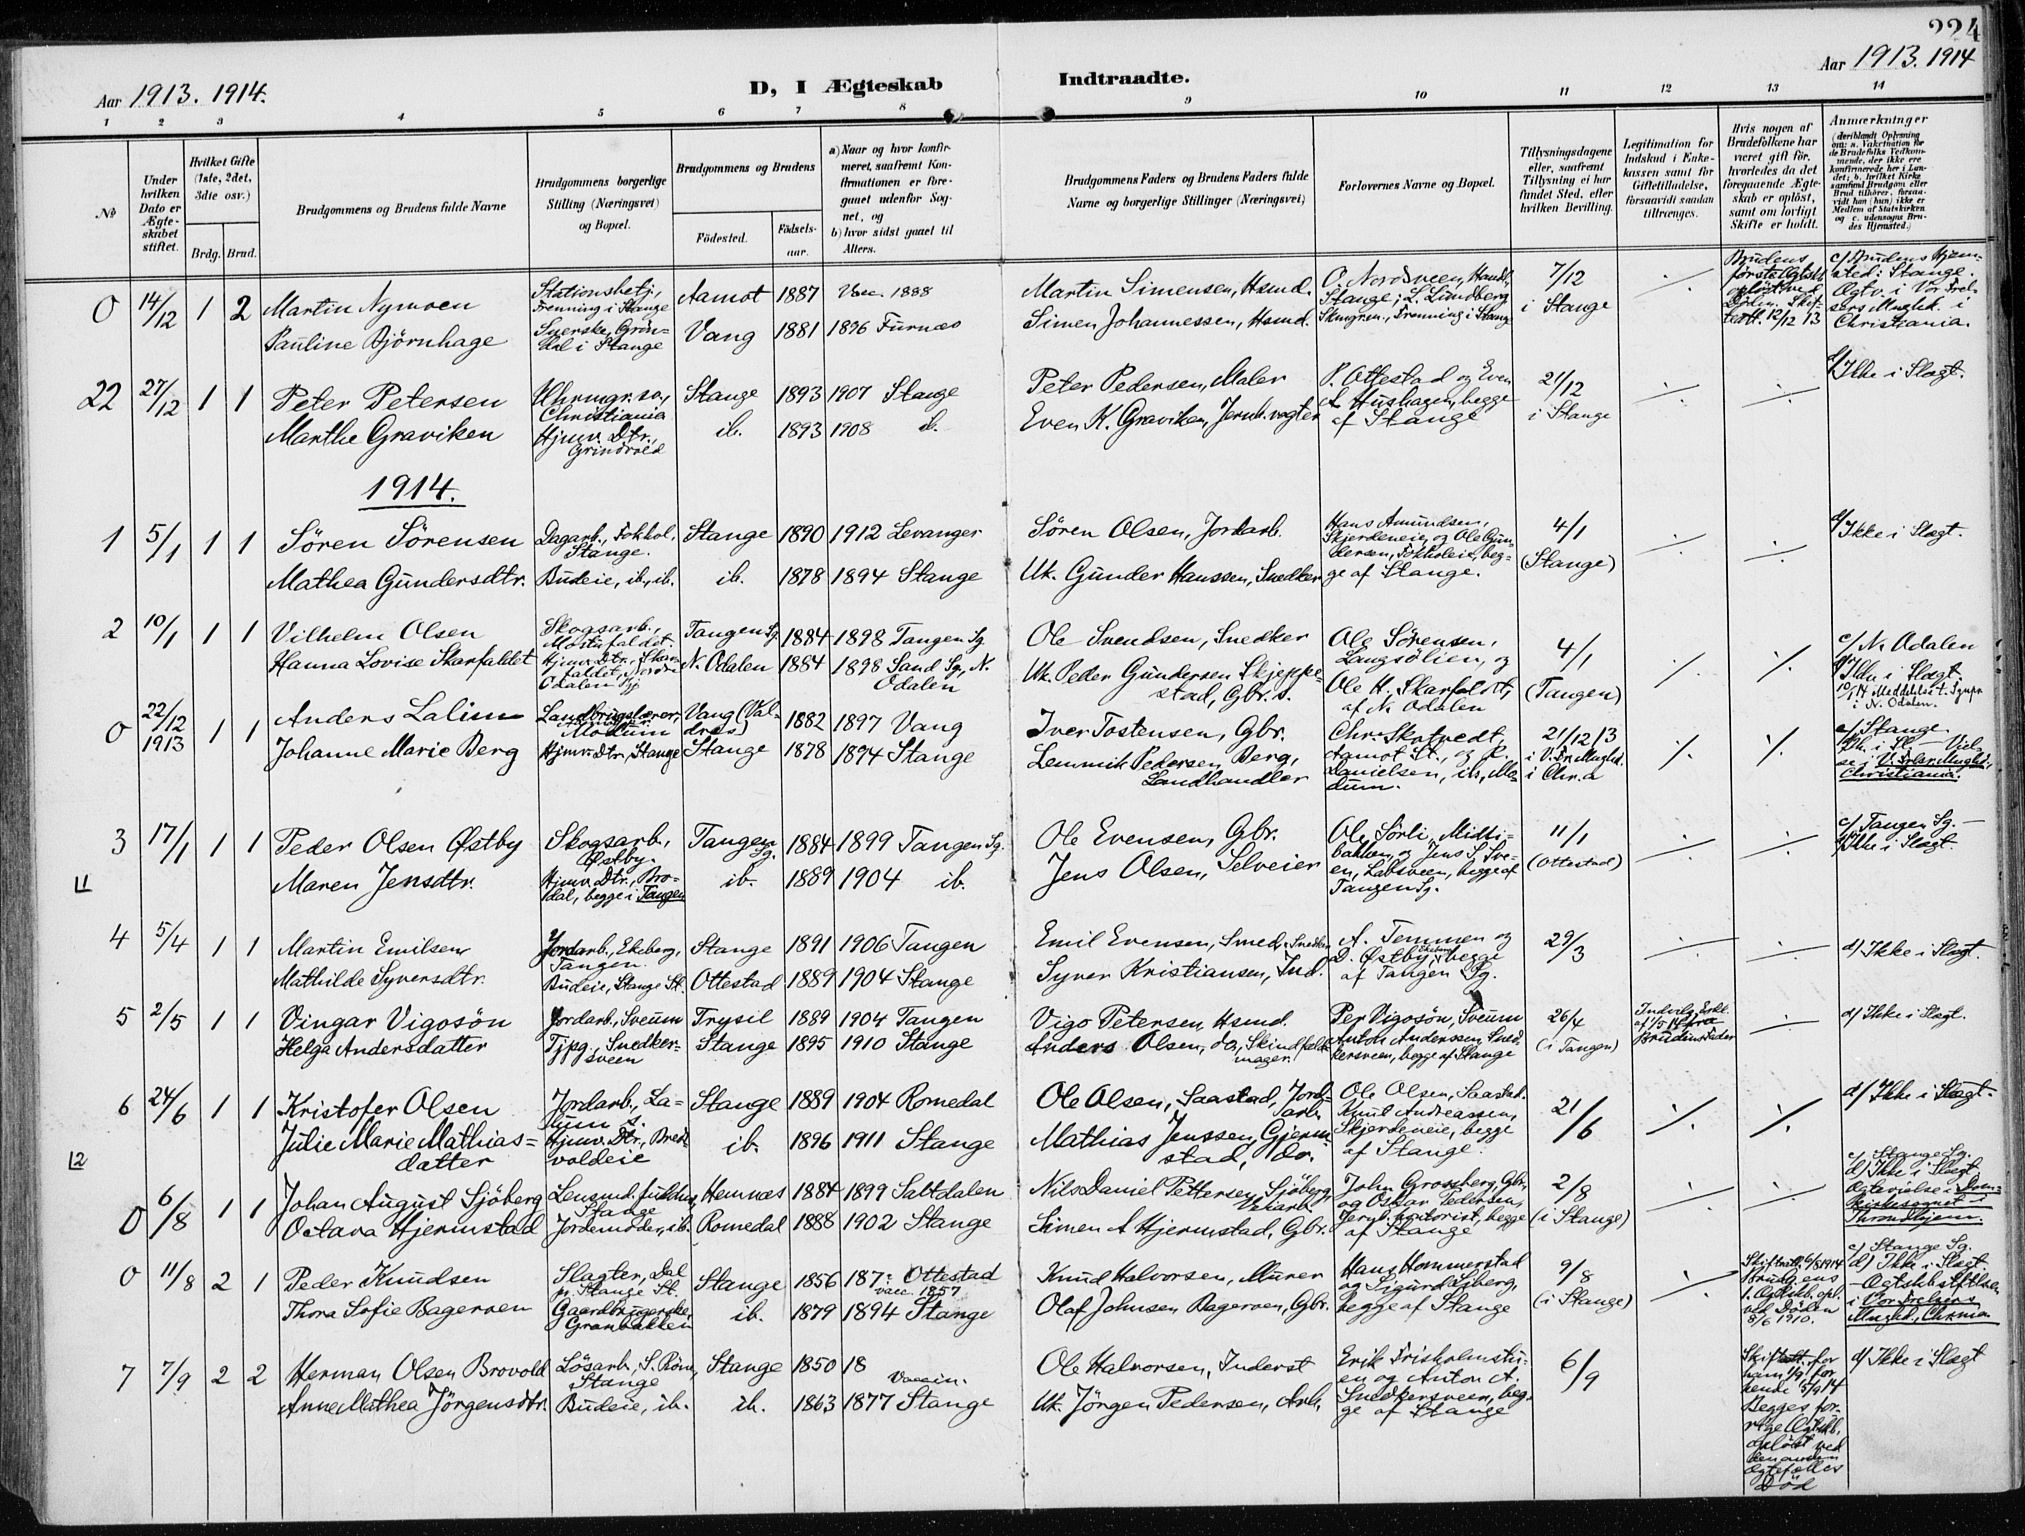 224
Aar 1913. 1914.
D, I Ægteskab Indtraadte.
Aar 1913. 1914
1 2 3 4 5 6 7 8 9 10 11 12 13 14
No
Under hvilken Dato er Ægteskabet stiftet.
Hvilket Gifte (1ste, 2det, 3die osv.)
Brdg. Brud.
Brudgommens og Brudens fulde Navne
Brudgommens borgerlige Stilling (Næringsvei) og Bopæl.
Brudgommens og Brudens
Fødested.
Fødselsaar.
a) Naar og hvor konfirmeret, saafremt Konfirmationen er foregaaet udenfor Sognet, og
b) hvor sidst gaaet til Alters.
Brudgommens Faders og Brudens Faders fulde Navne og borgerlige Stillinger (Næringsvei)
Forlovernes Navne og Bopæl.
Tillysningsdagene eller, saafremt Tillysning ei har fundet Sted, efter hvilken Bevilling.
Legitimation for Indskud i Enkekassen samt for Giftetilladelse, forsaavidt saadan tillrænges.
Hvis nogen af Brudefolkene har været gift før, hvorledes da det foregaaende Ægteskab er opløst, samt om lovligt Skifte er holdt.
Anmærkninger (deriblandt Oplysning om: a. Vakcination for de Brudefolks Vedkommende, der ikke ere konfirmerede her i Landet; b. hvilket Kirkesamfund Brudgom eller Brud tilhører, forsaavidt han (hun) ikke er Medlem af Statskirken og c. udensogns Brudes Hjemsted.)
0 14/12 1 2 Martin Nymoen Stationsbetj., Frenning i Stange Aamot 1887 Vacc. 1888 Martin Simensen, Hsmd. O. Nordsveen, Handl., Stange; L. Lundberg 7/12 ./. Brudens første Ægtsk. opløst ved Døden. Skifteatt. 12/12 13 c/ Brudens Hjemsted: Stange.
Pauline Björnhage Svenske, Gröndal i Stange Vang 1881 1896 Furnæs Simen Johannessen, Hsmd. Skmgrm., Frenning i Stange i Stange Ægtv. i Vor Frelsers Meghd. i Christiania.
22 27/12 1 1 Peter Petersen Uhrmgr.sv., Christiania Stange 1893 1907 Stange Peter Pedersen, Maler P. Ottestad og Even 21/12 ./. ./. d/ Ikke i Slægt.
Marthe Graviken Hjmv. Dtr., Grindvold ib. 1893 1908 ib. Even K. Graviken, Jernb.vogter A. Hushagen, begge af Stange i Stange
1914.
1 5/1 1 1 Sören Sörensen Dagarb., Fokhol, Stange. Stange 1890 1912 Levanger Sören Olsen, Jordarb. Hans Amundsen, Skjerdeneie, og Ole Gundersen, Fokholeie, begge af Stange. 4/1 ./. ./. d/ Ikke i Slægt.
Mathea Gundersdtr. Budeie, ib., ib. ib. 1878 1894 Stange Uk. Gunder Hanssen, Snedker (Stange)
2 10/1 1 1 Vilhelm Olsen Skogsarb., Mostufaldet Tangen Sg. 1884 1898 Tangen Sg. Ole Svendsen, Snedker Ole Sörensen, Langsölien, og 4/1 ./. ./. c/ N. Odalen
Hanna Lovise Skarfaldet Hjmv. Dtr., Skarfaldet, Nordre Odalen Sg. N. Odalen 1884 1898 Sand Sg., N. Odalen Uk. Peder Gundersen Skjeppestad, Gbr.s. Ole H. Skarfaldet, af N. Odalen (Tangen) d/ Ikke i Slægt. 10/1 14 Meddelse t. Sgnpr. i N. Odalen.
0 22/12 1913 1 1 Anders Lalim Landbrugslærer, Modum Vang (Valdres) 1882 1897 Vang Iver Tostensen, Gbr. Chr. Skotvedt, 21/12 13 ./. ./. c/ Stange.
Johanne Marie Berg Hjmv. Dtr., Stange Stange 1878 1894 Stange Lemmik Pedersen Berg, Landhandler Aamot St., og P. Danielsen, ib., Modum. i V. Fr. Meghd. i Chr.a d/ Ik. i Sl. — Vielse i V. Frlsr. Meghd., Christiania.
3 17/1 1 1 Peder Olsen Østby Skogsarb., Østby. Tangen Sg. 1884 1899 Tangen Sg. Ole Evensen, Gbr. Ole Sörli, Midtibakken, og Jens S. Sveen, Labsveen, begge af Tangen Sg. 11/1 ./. ./. c/ Tangen Sg. —
Maren Jensdtr. Hjmv. Dtr., Brodal, begge i Tangen ib. 1889 1904 ib. Jens Olsen, Selveier (Ottestad) d/ Ikke i Slægt.
4 5/4 1 1 Martin Emilsen Jordarb., Ekeberg, Tangen. Stange 1891 1906 Tangen Emil Evensen, Smed, Snedker A. Temmen og 29/3 ./. ./. d/ Ikke i Slægt.
Mathilde Syversdtr. Budeie, Stange St. Ottestad 1889 1904 Stange Syver Kristiansen, Ind. D. Østby, Ekeberg, begge af Tangen Sg.
5 2/5 1 1 Vingar Vigosön Jordarb., Sveum Trysil 1889 1904 Tangen Vigo Petersen, Hsmd. Per Vigosön, Sveum 26/4 Indvilg. Erkl. af 1/5 14 fra Brudens Fader ./. d/ Ikke i Slægt.
Helga Andersdatter Tjpg., Snedkersveen Stange 1895 1910 Stange Anders Olsen, do., Skindfeldmager. Anton Anderssen, Snedkersveen, begge af Stange (i Tangen)
6 24/6 1 1 Kristofer Olsen Jordarb., Ladum s. Stange 1889 1904 Romedal Ole Olsen, Saastad, Jordarb. Ole Olsen, Saastad, Knut Andreassen, 21/6 ./. ./. d/ Ikke i Slægt.
Julie Marie Mathiasdatter Hjmv. Dtr., Bredvoldeie ib. 1896 1911 Stange Mathias Jenssen, Gjermstad, do. Skjerdeneie, begge af Stange.
0 6/8 1 1 Johan August Sjöberg Lensmd.fuldm., Stange Hemnæs 1884 1899 Saltdalen Nils Daniel Pettersen Sjöberg, Veiarb. John Grosberg, Gbr., og Oskar Pedersen, 2/8 ./. ./. c/ Stange Sg. d/ Ikke i Slægt
Octava Hjermstad Jordemoder, ib. Romedal 1888 1902 Stange Simen A. Hjermstad, Gbr. Jernb.kontorist, begge af Stange (i Stange) Ægtevielse i Domkirkesognet i Throndhjem.
0 11/8 2 1 Peder Knudsen Slagter, Dal p. Stange St. Stange 1856 187 Ottestad vacc. 1857 Knud Halvorsen, Murer Hans Hommerstad og Sigurd Sjöberg, 9/8 ./. Skifteatt. 6/8 1914 Brudg.ens 1. Ægtskb. opl. ved Döden 8/6 1910. c/ Stange Sg. d/ Ikke i Slægt.
Thora Sofie Bagerøen Gaardbrugerske, Granbakken ib. 1879 1894 Stange Olaf Johnsen Bagerøen, Gbr. begge af Stange (i Stange) — Ægtskb.stiftelsen i Vor Frelsers Meghd., Chrnia.
7 7/9 2 2 Herman Olsen Brovold Lösarb., S. Röne, Stange Stange 1850 18 Vaccin. Ole Halvorsen, Inderst Erik Frisholmstuen og Anton A. 6/9 Skifteatt. for ham 1/9, for hende 5/9 14 Begges forrige Ægtskb. oplöst ved den anden Ægtefælles Död d/ Ikke i Slægt
Anne Mathea Jörgensdtr. Budeie, ib. ib. 1863 1877 Stange Uk. Jörgen Pedersen, Arb. Snedkersveen, begge af Stange